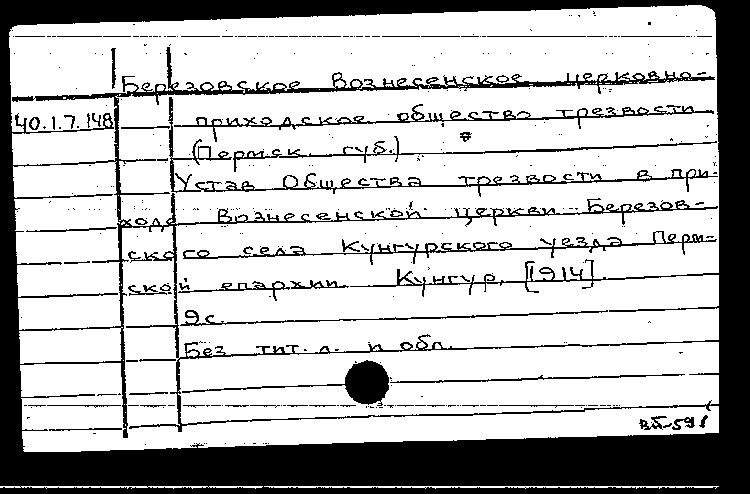 Березовское Вознесенское церковно=
40.1.7.148 приходское общество трезвости
(Пермск. губ.)
Устав Общества трезвости в при-
ходе Вознесенской церкви Березов-
ского села Кунгурского уезда Перм=
ской епархии. Кунгур, [1914].
9 с.
Без тит. л. и обл.